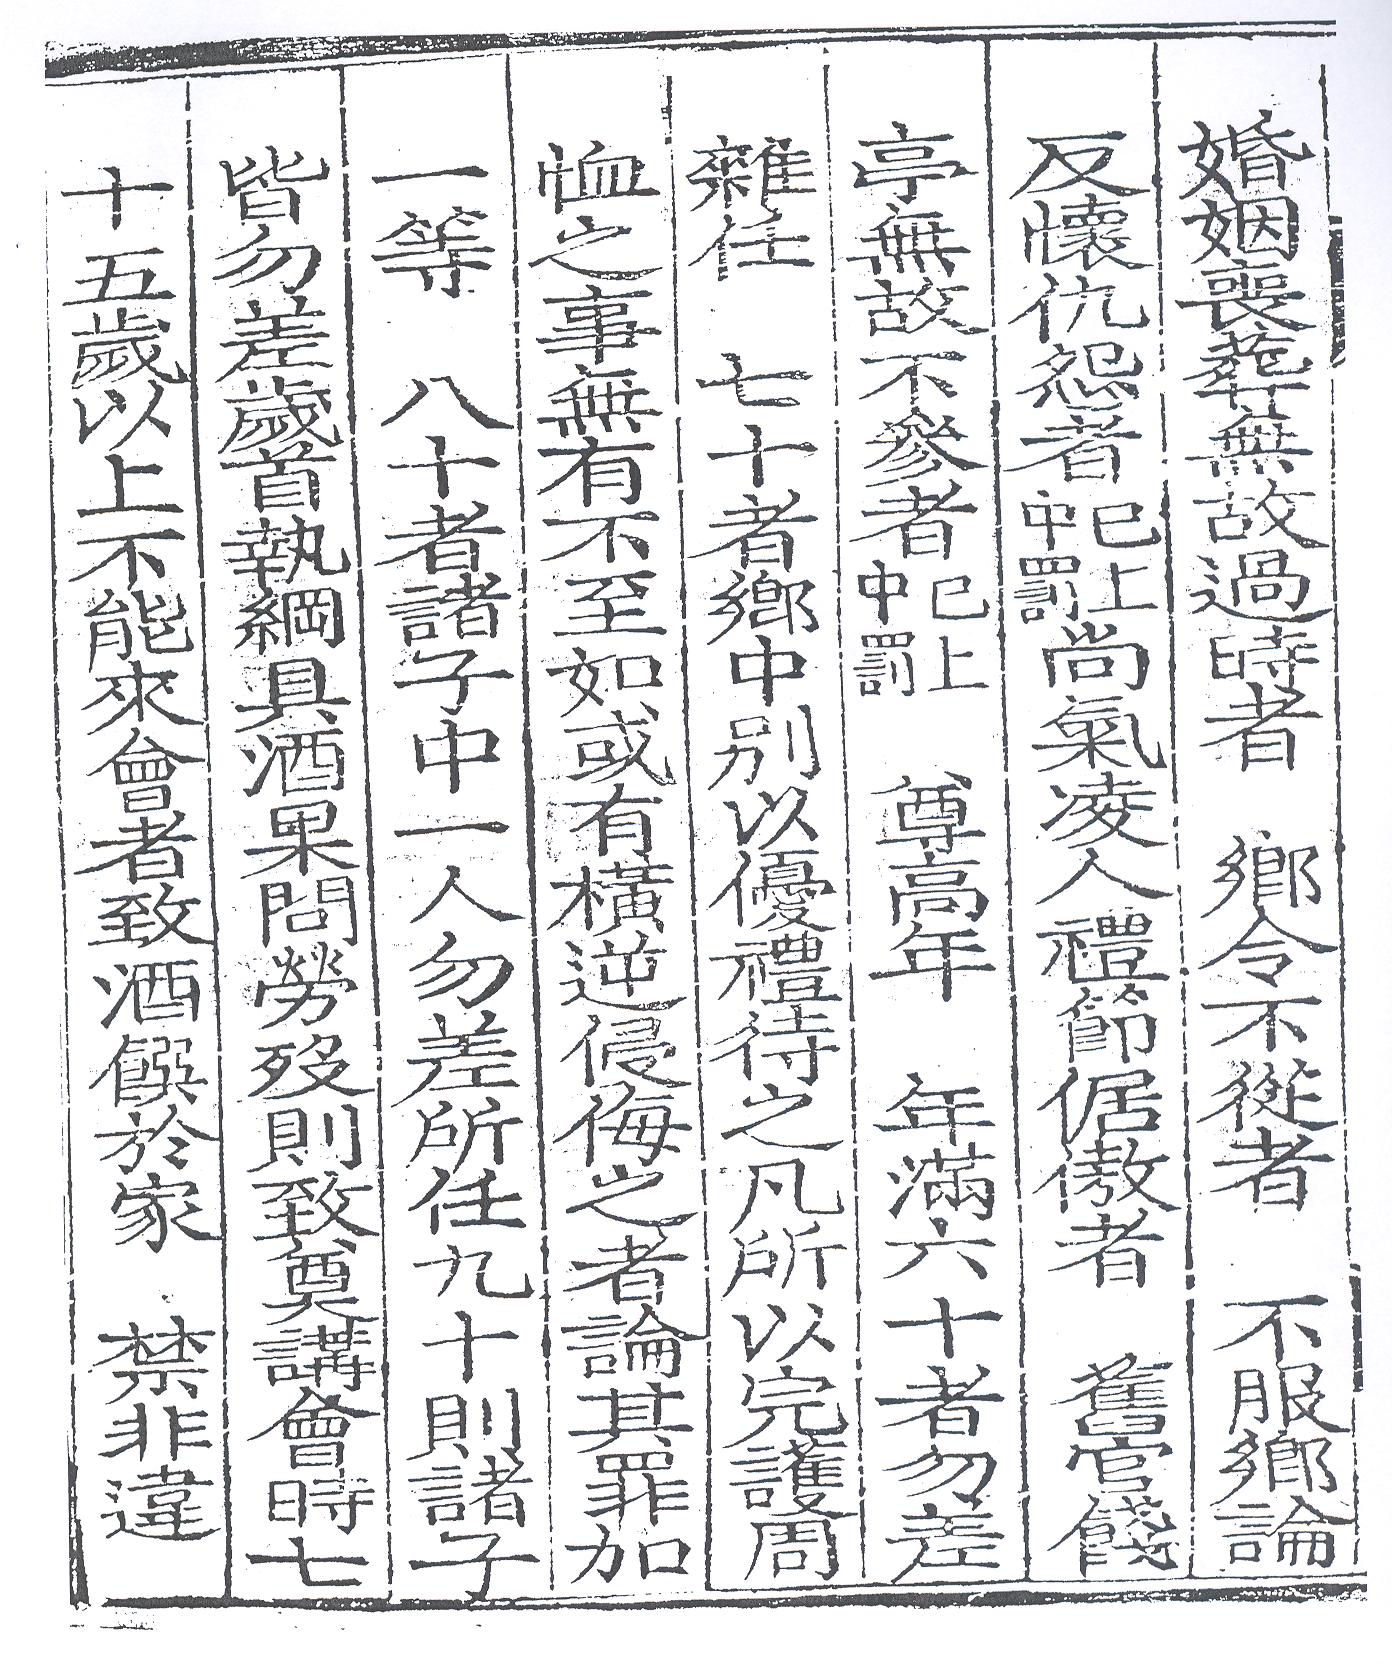 婚姻喪葬無故過時者　鄕令不從者　不服鄕論
反懷仇怨者已上中罰尙氣凌人禮節倨傲者　舊官餞
亭無故不參者已上中罰　尊高年　年滿六十者勿差
雜任　七十者鄕中別以優禮待之凡所以完護周
恤之事無有不至如或有橫逆侵侮之者論其罪加
一等　八十者諸子中一人勿差所任九十則諸子
皆勿差歲首執綱具酒果問勞歿則致奠講會時七
十五歲以上不能來會者致酒饌於家　禁非違